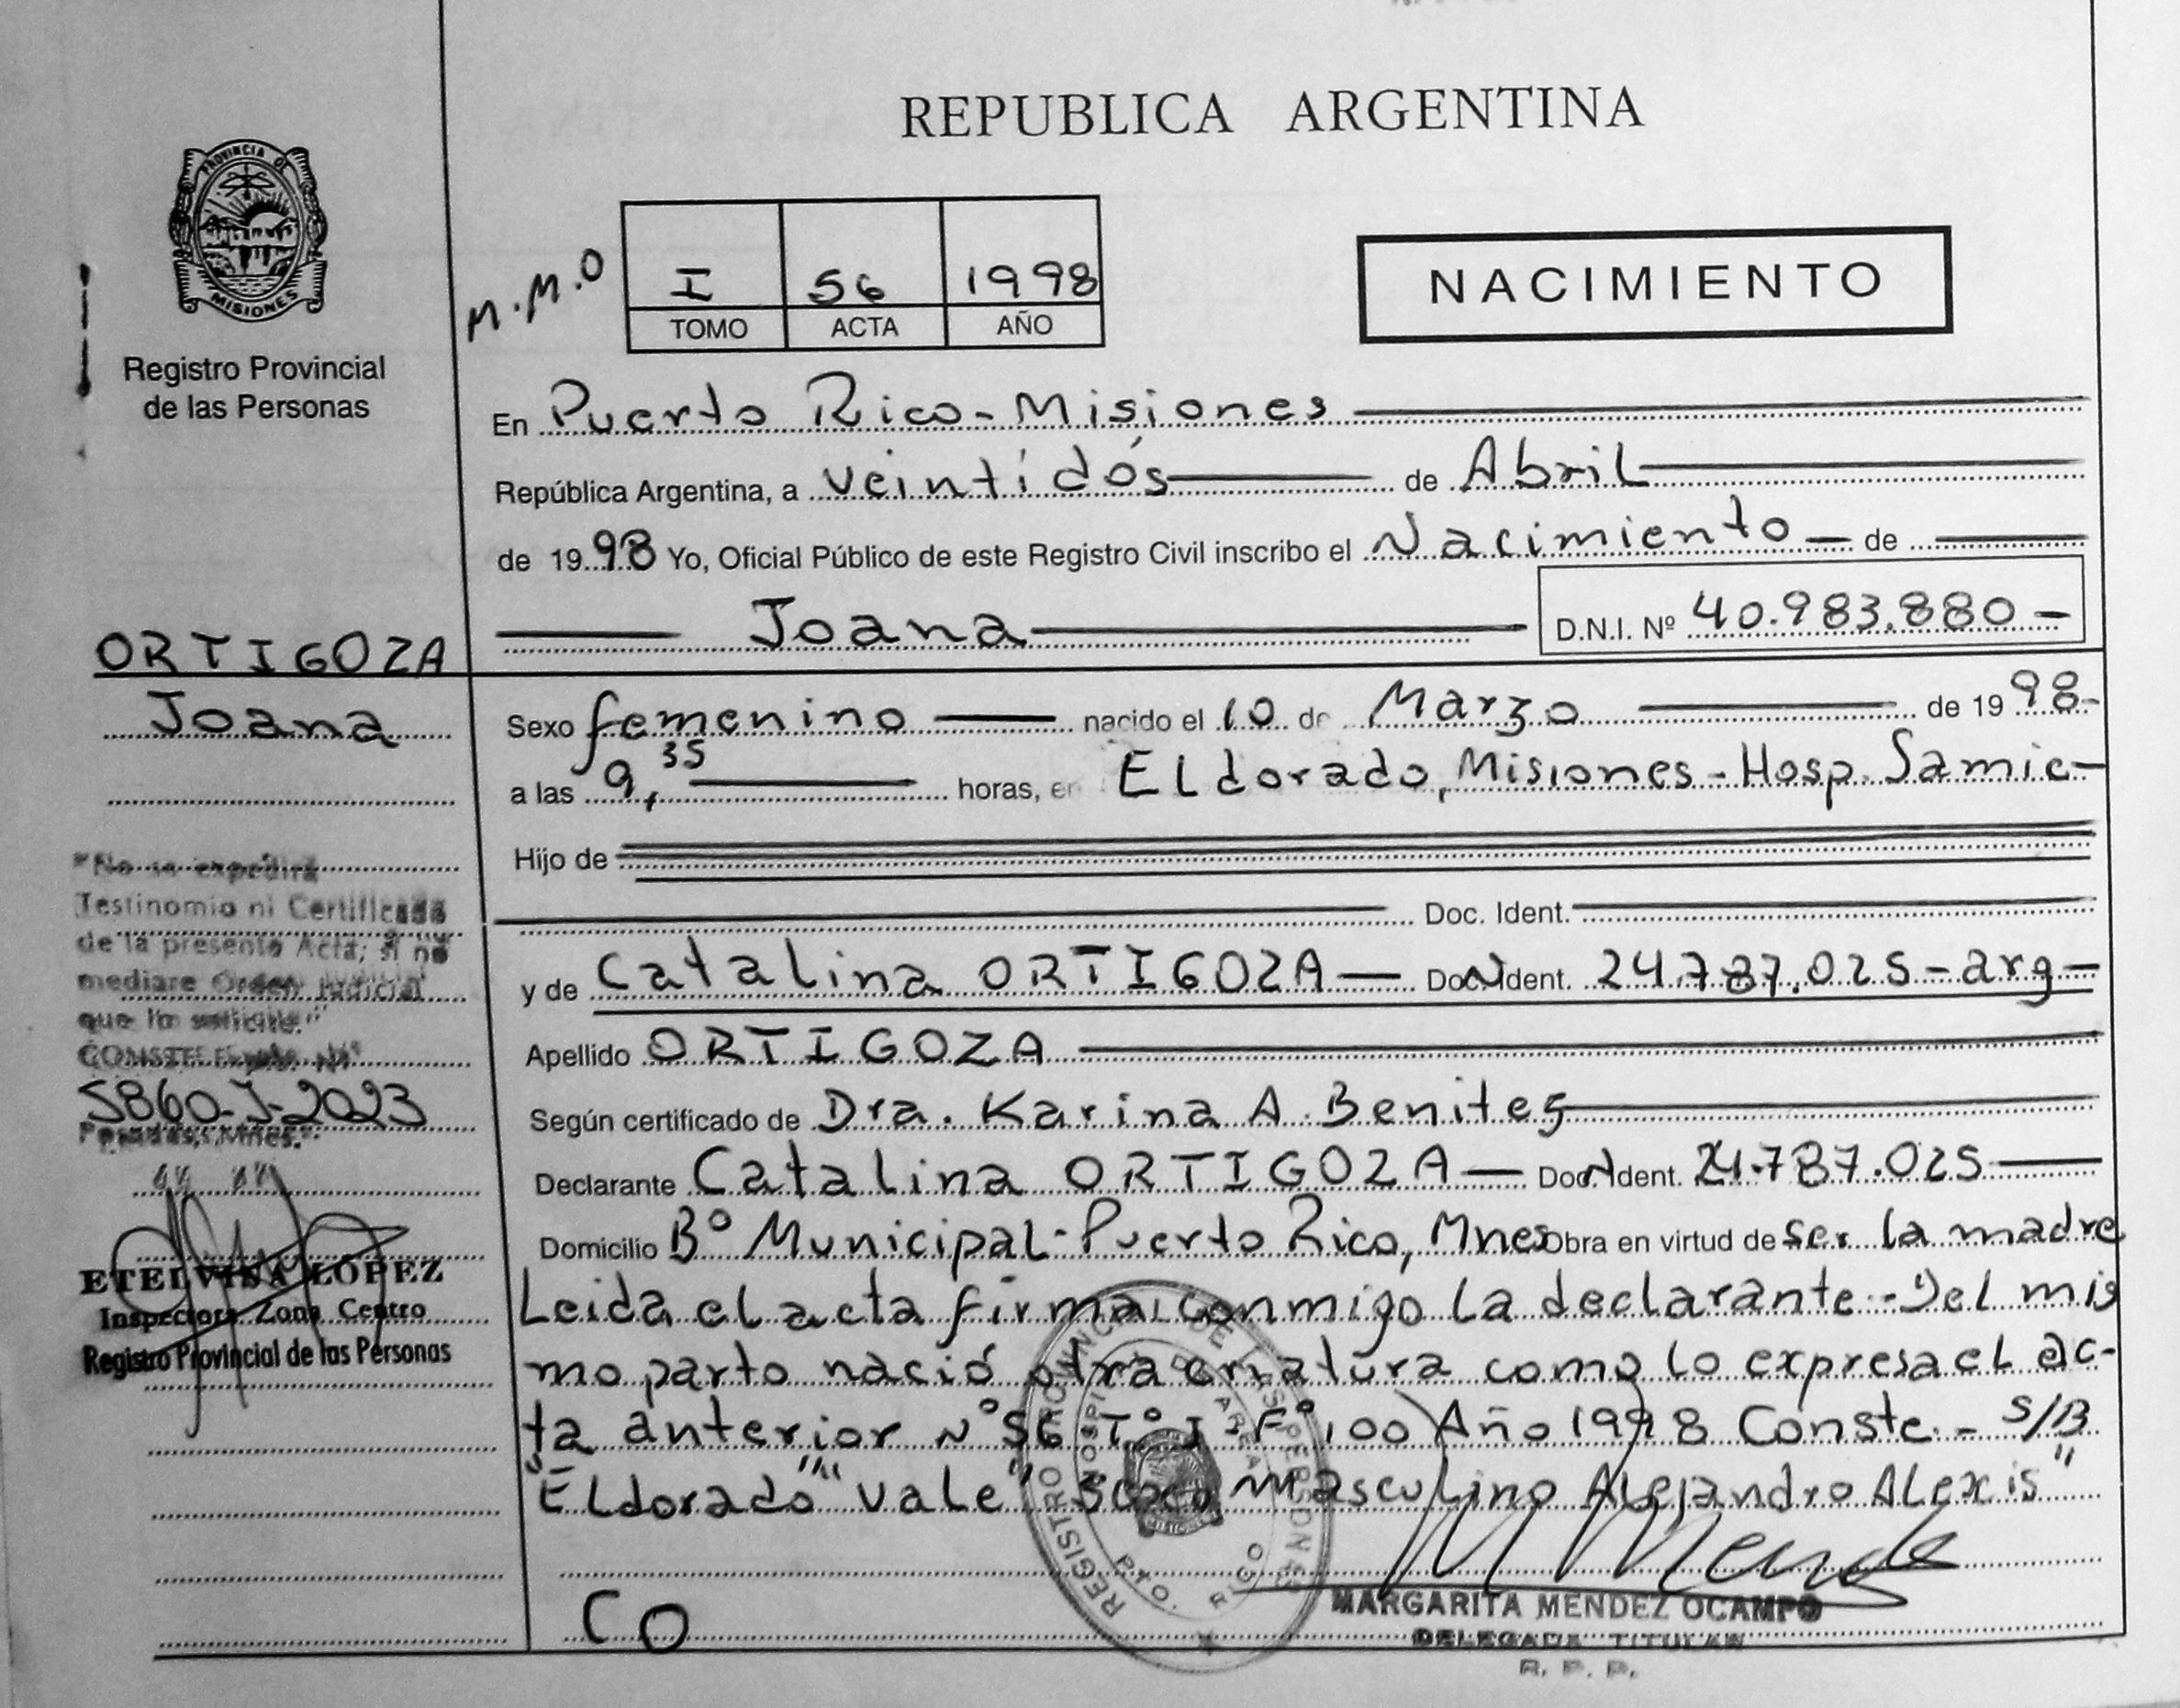 REPUBLICA ARGENTINA
PROVINCIA DE
MISIONES
Registro Provincial
de las Personas
M.M.O
I 56 1998
TOMO ACTA AÑO
NACIMIENTO
En Puerto Rico - Misiones
República Argentina, a veintidós de Abril
de 1998 Yo, Oficial Público de este Registro Civil inscribo el Nacimiento de
Joana D.N.I. Nº 40.983.880
ORTIGOZA
Joana
Sexo femenino nacido el 10 de Marzo de 1998-
a las 9,35 horas, en ELdorado, Misiones - Hosp. Samic-
Hijo de
Doc. Ident.
y de Catalina ORTIGOZA Doc. Ident. 24.787.025 - arg
Apellido ORTIGOZA
Según certificado de Dra. Karina A. Benites
Declarante Catalina ORTIGOZA Doc. Ident. 24.787.025
Domicilio Bº Municipal - Puerto Rico, Mnes Obra en virtud de ser la madre
Leida el acta firma conmigo la declarante - Del mis
mo parto nació otra criatura como lo expresa el ac-
ta anterior Nº 56 Tº I Fº 100 Año 1998 Conste - S/B
"ELdorado" "vale" masculino Alejandro Alexis"
"No se expedirá
Testinomio ni Certificado
de la presente Acta; si no
mediare Orden Judicial
que lo solicite."
CONSTE Expte. Nº
5860-J-2023
Posadas, Mnes.
ETELVINA LÓPEZ
Inspectora Zona Centro
Registro Provincial de las Personas
REGISTRO PROVINCIAL DE LAS PERSONAS
PTO. RICO
CO
MARGARITA MENDEZ OCAMPO
DELEGADA TITULAR
R. P. P.